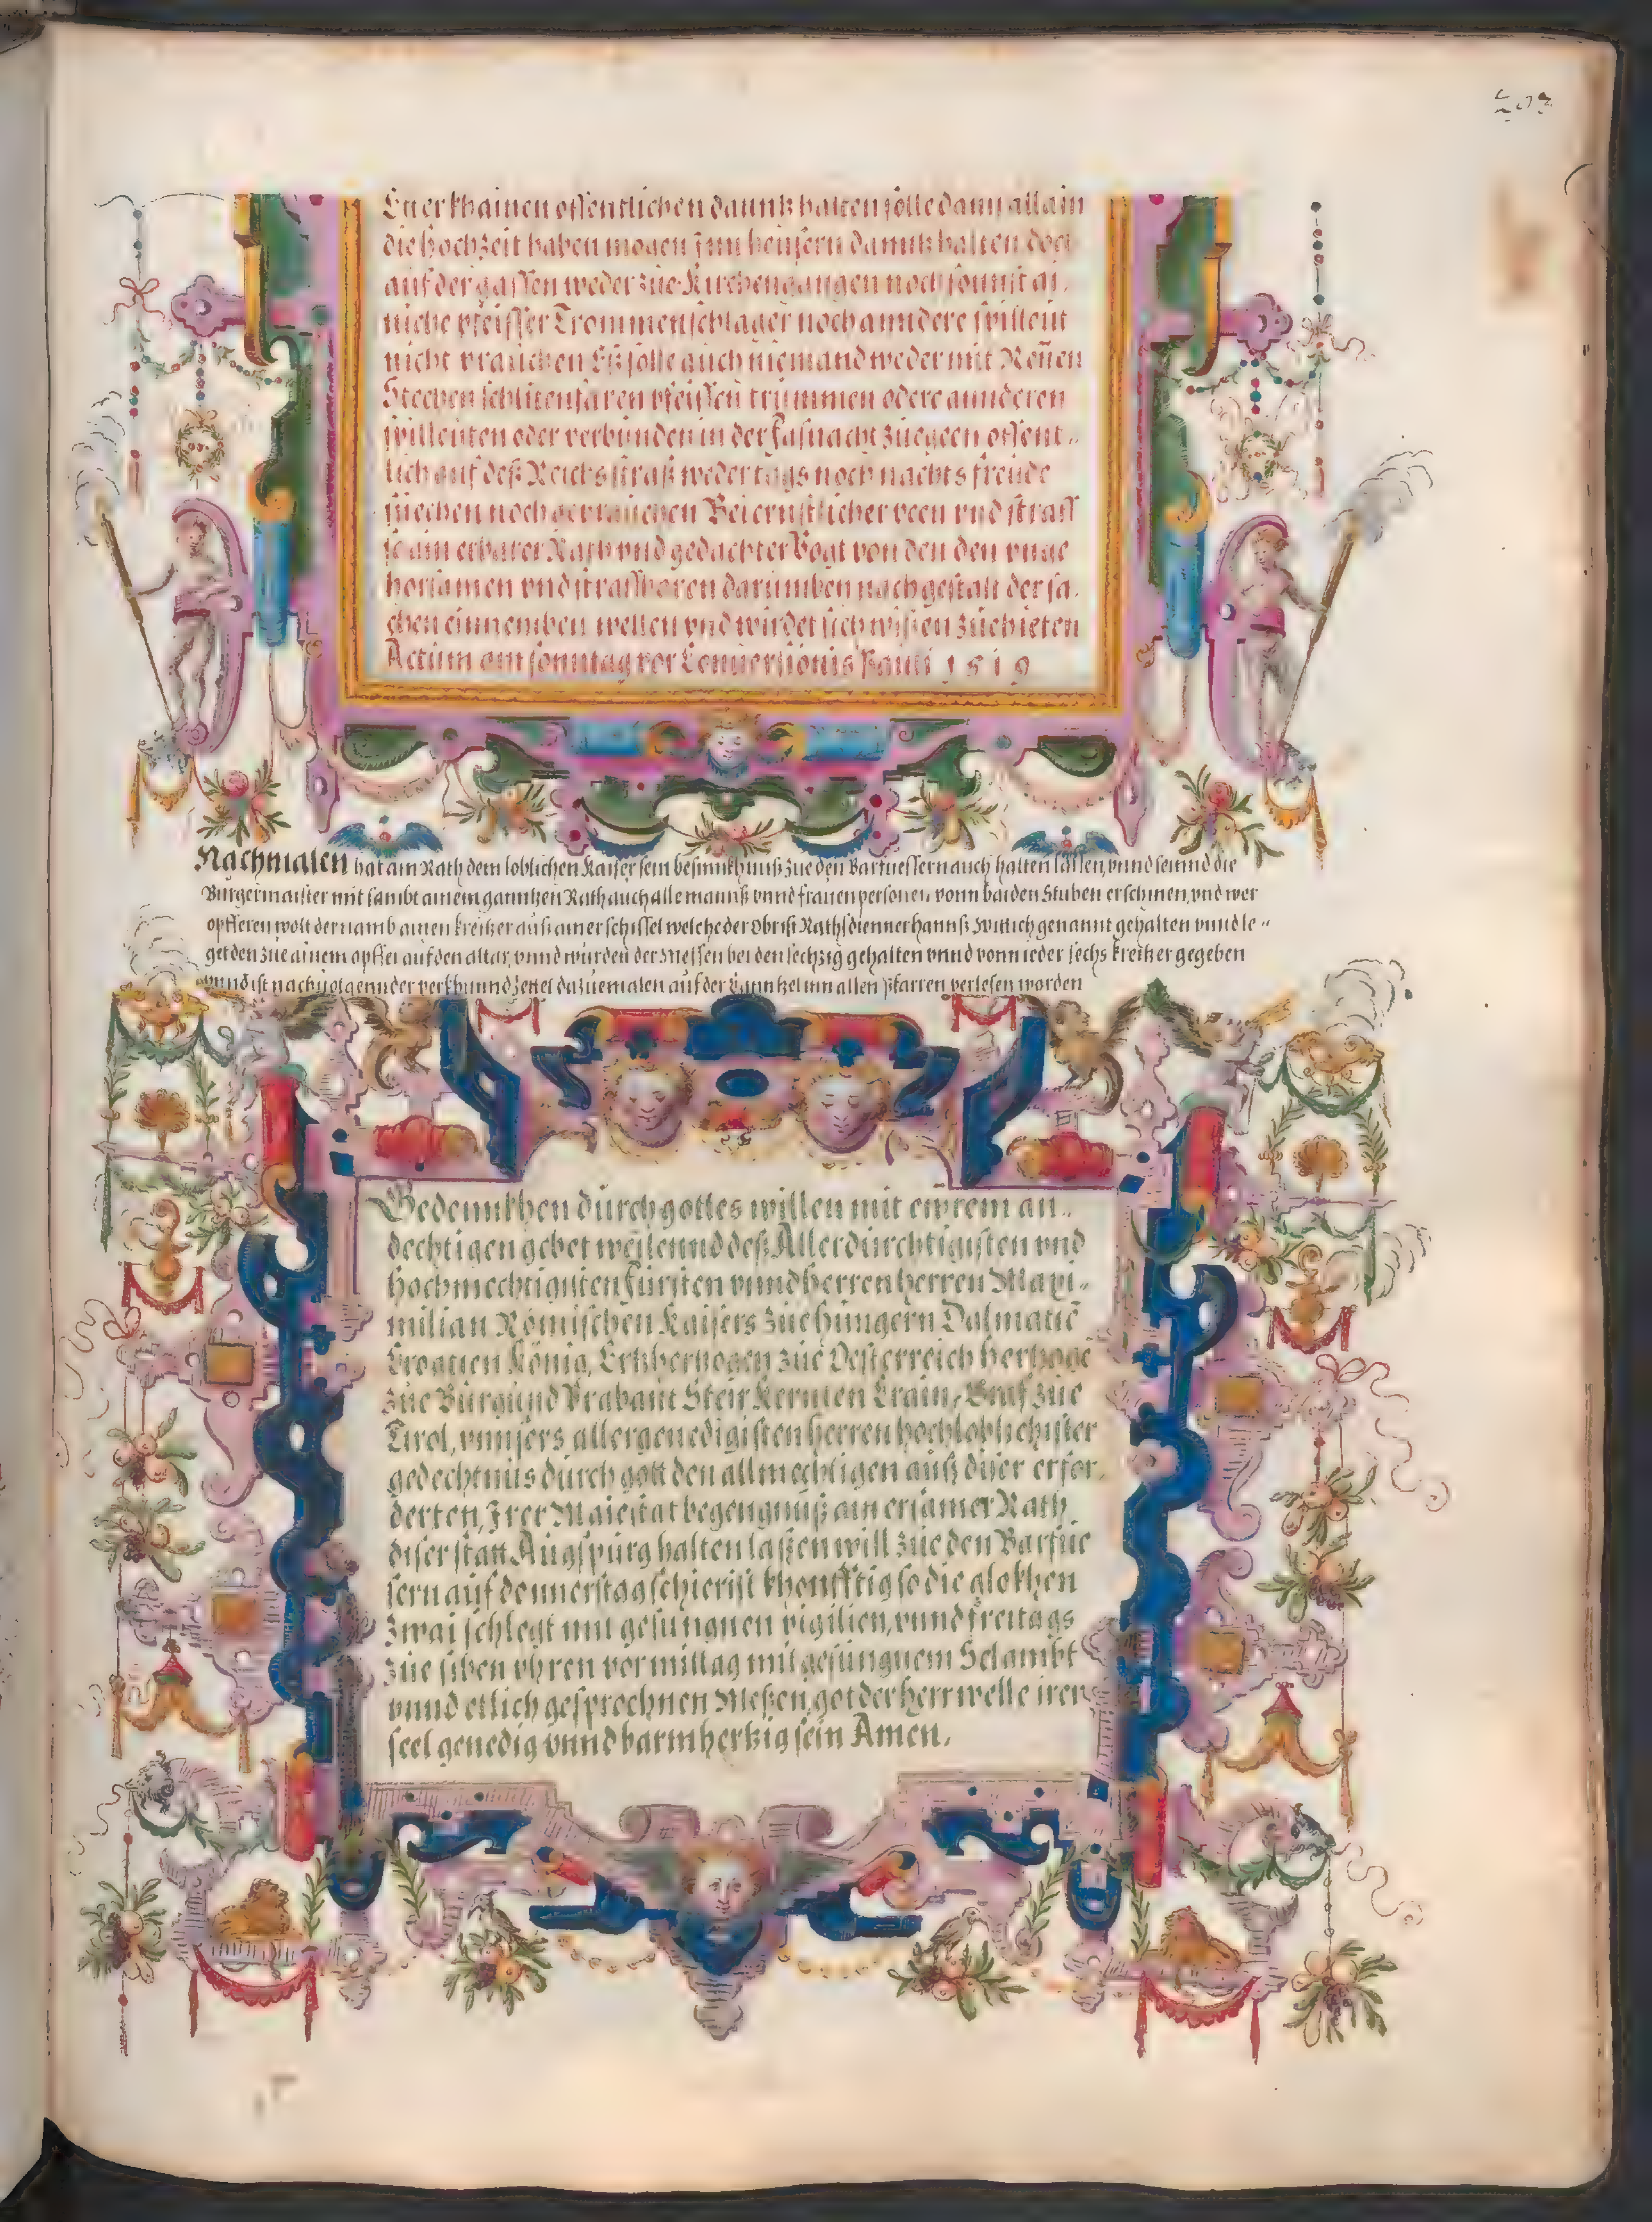 Etter khainen offentlichen daunntz halten solle dann allain
die hochzeit haben mogen Inn heüsern danntz halten doch
auf der gassen weder züe Kirchengangen noch sonnst ai-
niche pfeiffer Trommenschlager noch anndere spilleut
nicht prauchen Es solle auch niemand weder mit Rennen
Stechen schlitenfaren pfeiffen trummen odere annderen
spilleuten oder verbunden in der fasnacht züegeen offent-
lich auf deß Reichs straß weder tags noch nachts freude
süechen noch gebrauchen Bei ernstlicher peen vnd straff
so ain erbarer Rath vnd gedachter Vogt von den den vnge
horsamen vnd straffbaren darumben nach gestalt der sa-
chen einnemben wellen vnd wirdet sich wissen züehieten
Actum am sonntag vor Conuersionis Pauli 1519
Nachmalen hat ain Rath dem loblichen Kaiser sein besinnkhnuß züe den Barfuessern auch halten lassen, vnnd seinnd die
Burgermaister mit sambt ainem ganntzen Rath auch alle manns vnnd frauen personen vonn baiden Stuben erschinen, vnd wer
opfferen wolt der namb ainen kreitzer auß ainer schissel welche der obrist Rathsdienner hannß Wittich genannt gehalten vnnd le-
get den züe ainem opffer auf den altar, vnnd wurden der Messen bei den sechzig gehalten vnnd vonn ieder sechs kreitzer gegeben
vnnd ist nachuolgennder verkhunnd Zettel dazuemalen auf der Canntzel inn allen Pfarren verlesen worden
Gedennkhen durch gottes willen mit ewrem an-
dechtigen gebet weilennd deß Allerdurchtigisten vnd
hochmechtigisten fürsten vnnd herren herren Maxi-
milian Römischen Kaisers züe hungern Dalmatie
Croatien König, Ertzhertzogen züe Oesterreich hertzoge
züe Burgund Brabant Steir Kernten Crain, Graf züe
Tirol, vnnsers allergenedigisten herren hochloblichister
gedechtnus durch gott den allmechtigen auß diser erfor-
derten, Irer Maiestat begengnuß ain ersamer Rath
diser statt Augspurg halten laßen will züe den Barfue
sern auf donnerstag schierist khonfftig so die glokhen
zwai schlegt mit gesungnen vigilien, vnnd freitags
züe siben vhren vor mittag mit gesungnem Selambt
vnnd etlich gesprochnen Meßen, got der herr welle iren
seel genedig vnnd barmhertzig sein Amen.